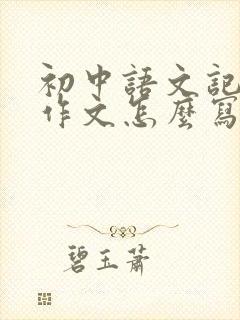 初中語文記
作文怎麼寫
碧玉蕭